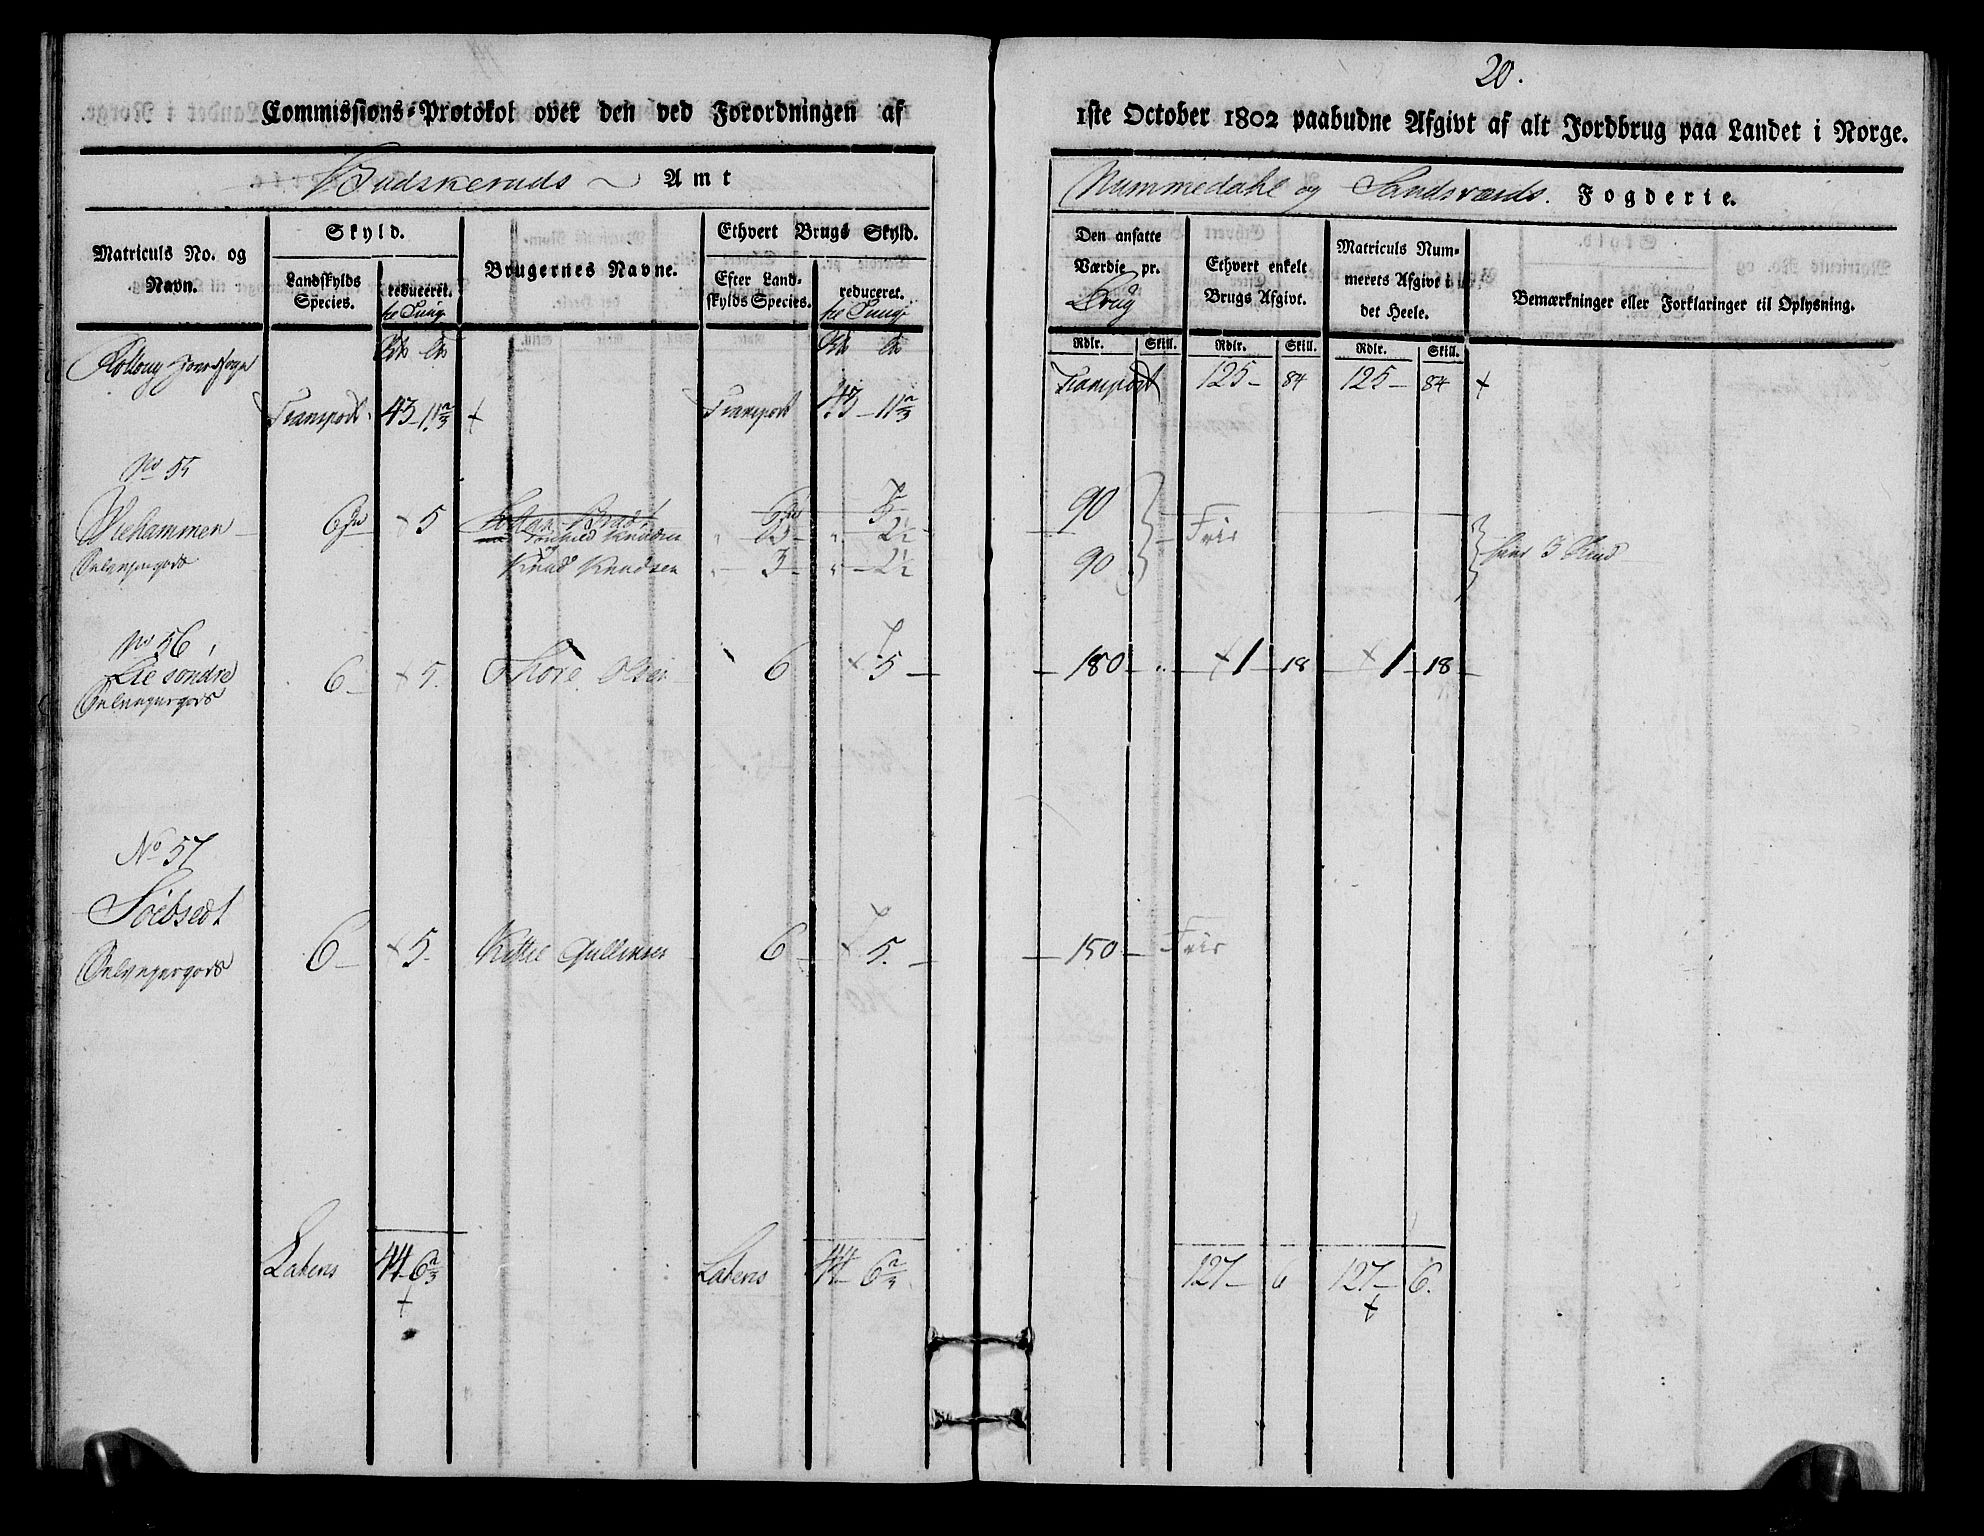 20.
Commissions-Protokol over den ved Forordningen af
1ste October 1802 paabudne Afgivt af alt Jordbrug paa Landet i Norge.
Budskeruds Amt
Nummedahl og Sandsværds. Fogderie.
Matriculs No. og Navn.
Skyld.
Landskylds Species.
reduceret.
Brugernes Navne.
Ethvert Brugs Skyld.
Efter Landskylds Species.
reduceret.
Den ansatte Værdie pr. Brug
Ethvert enkelt Brugs Afgivt.
Matriculs Nummerets Afgivt i det Heele.
Bemærkninger eller Forklaringer til Oplysning.
Rdlr. Skill. Rdlr. Skill. Rdlr. Skill.
Rolloug
Transport 43 - 11 2/3 Transport 43 - 11 2/3 Transport 125 - 84 125 - 84
No 55
Wiehammen 6 5 5
Knudsen 3 2½ 90 Frie
Selvejergods Knud Knudsen 3 2½ 90
No 56
Lie söndre 6 5. Thore Olsen 6 5 180 1 18 1 18
Selvejergods
No 57
6 5. Kittil 6 5. 150 Frie
Selvejergods
Lateris 44 6 2/3 Lateris 44 6 2/3 127 6 127 6.